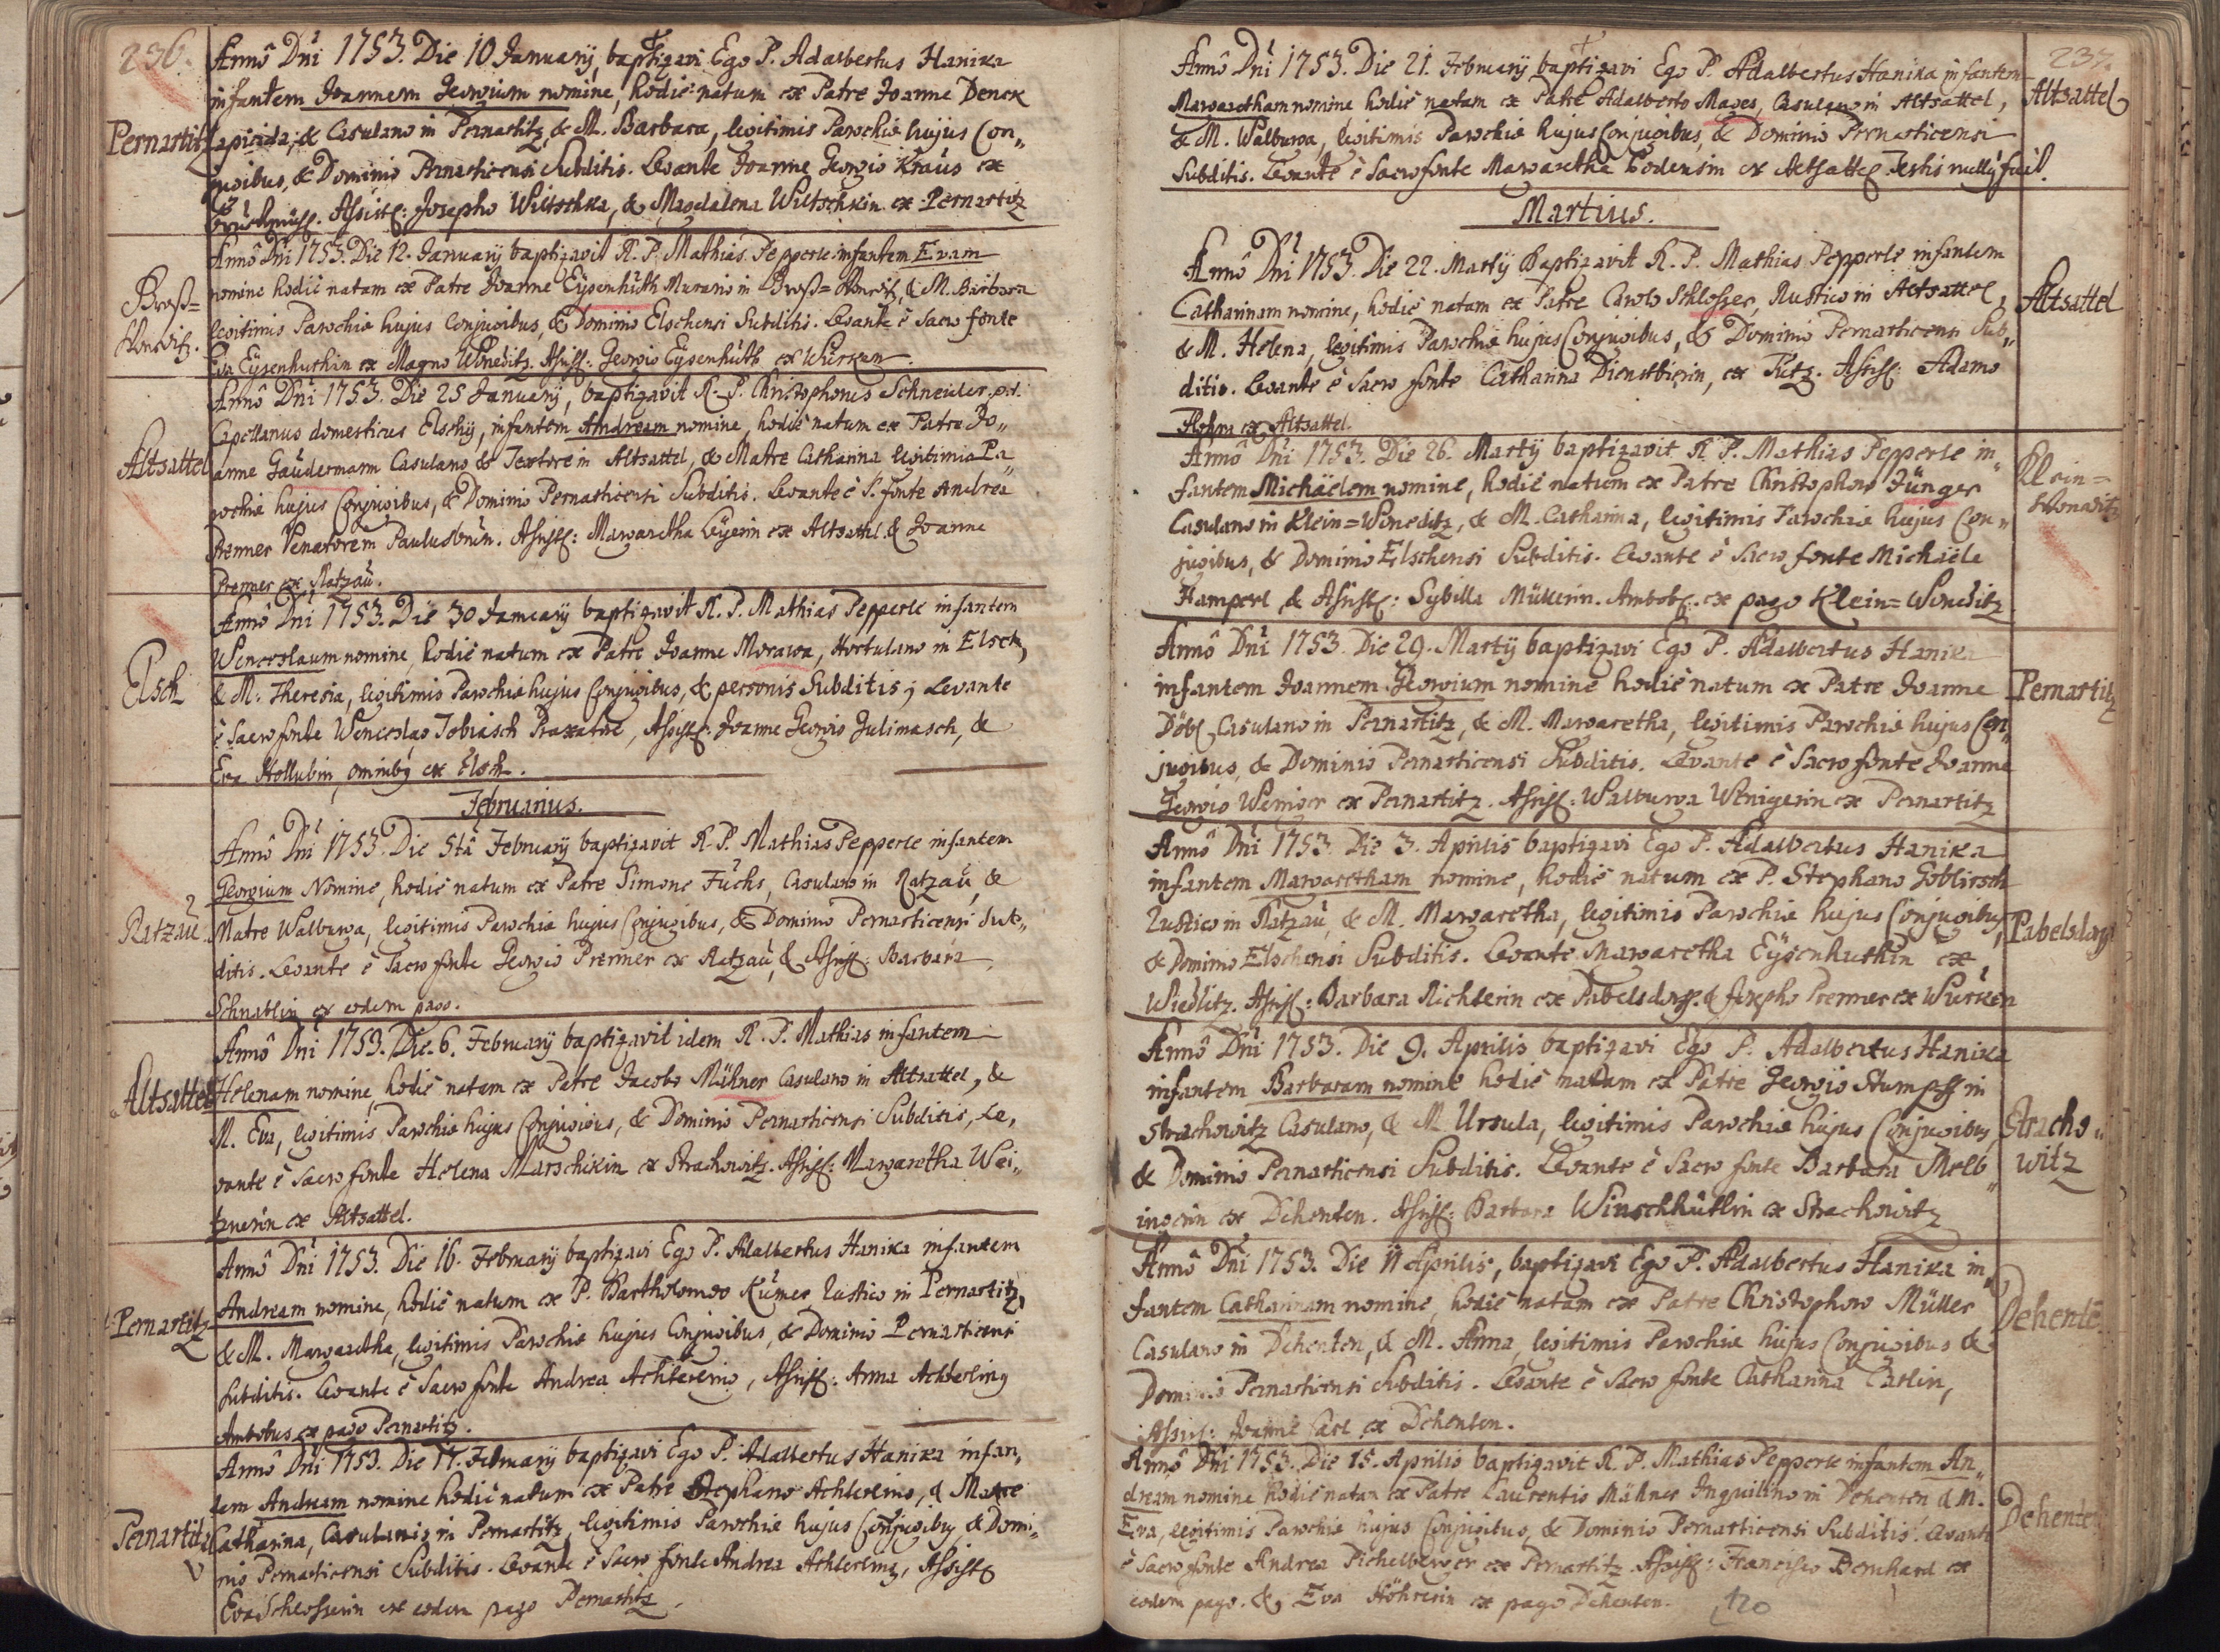 236.
Annô Dni 1753. Die 10 January, baptizavi Ego P. Adalbertus Hanika
infantem Joannem Georgium nomine, hodie natum ex Patre Joanne Denck
Pernartitz
Lapicida, & Casulano in Pernartitz, & M. Barbara, legitimis Parochiæ hujus Con„
jugibus, & Dominio Pernarticensi Subditis. Levante Joanne Georgio Kraus ex
Assist: Josepho Wiltschka, & Magdalena Wiltschkin ex Pernartitz
Annô Dni 1753. Die 12. January baptizavit R. P. Mathias Pepperle infantem Evam
Groß=
nomine hodie natam ex Patre Joanne Eysenhuth Murario in Groß=Wonewitz, & M. Barbara
legitimis Parochiæ hujus Conjugibus, & Dominio Elschensi Subditis. Levante è Sacro fonte
Eva Eysenhuthin ex Magno Woneditz. Assist: Georgio Eysenhuth ex Wurken.
Annô Dni 1753. Die 25 January, baptizavit R. P. Christophorus Schneider, p.t.
Capellanus domesticus Elschy, infantem Andream nomine, hodie natum ex Patre Jo„
Altsattel
anne Gaudermann Casulano & Textore in Altsattel, & Matre Catharina legitimis Pa„
rochiæ hujus Conjugibus, & Dominio Pernarticensi Subditis. Levante è S. fonte Andrea
Renner Venatorem Paulusbrun. Assist: Margaretha Leyerin ex Altsattl & Joanne
Prenner ex Ratzau.
Annô Dni 1753. Die 30 January baptizavit R. P. Mathias Pepperle infantem
Wenceslaum nomine, hodie natum ex Patre Joanne Morawa, Hortulano in Elsch,
Elsch
& M. Theresia, legitimis Parochiæ hujus Conjugibus, & personis Subditis; Levante
è Sacro fonte Wenceslao Tobiasch Braxatore, Assist: Joanne Georgio Julimasch, &
Eva Hollubin, omnibus ex Elsch.
Februarius.
Annô Dni 1753. Die 5tâ February baptizavit R. P. Mathias Pepperle infantem
Georgium Nomine, hodie natum ex Patre Simone Fuchs, Casulano in Ratzau, &
Ratzau
Matre Walburga, legitimis Parochiæ hujus Conjugibus, & Dominio Pernarticensi Sub„
ditis. Levante è Sacro fonte Georgio Prenner ex Ratzau, & Assist: Barbara
Schnablin ex eodem pago.
Annô Dni 1753. Die. 6. February baptizavit idem R. P. Mathias infantem
Altsattel
Helenam nomine, hodie natam ex Patre Jacobo Mühner Casulano in Altsattel, &
M. Eva, legitimis Parochiæ hujus Conjugibus, & Dominio Pernarticensi Subditis, Le,
vante è Sacro fonte Helena Marschikin ex Strachowitz. Assist: Margaretha Wei„
tznerin ex Altsattel.
Annô Dni 1753. Die 16. February baptizavi Ego P. Adalbertus Hanika infantem
Andream nomine, hodie natum ex P. Bartholomæo Kumer Rustico in Pernartitz,
Pernartitz
& M. Margaretha, legitimis Parochiæ hujus Conjugibus, & Dominio Pernarticensi
Subditis. Levante è Sacro fonte Andrea Achtereing, Assist: Anna Achtereing
Ambobus ex pago Pernartitz.
Annô Dni 1753. Die 17. February baptizavi Ego P. Adalbertus Hanika infan,
tem Andream nomine hodie natum ex Patre Stephano Achtereing, & Matre
Pernartitz
Catharina, Casulanis in Pernartitz, legitimis Parochiæ hujus Conjugibus & Domi„
nio Pernarticensi Subditis. Levante è Sacro fonte Andrea Achtereing, Assist:
Eva Schlosserin ex eodem pago Pernartitz.
237.
Annô Dni 1753. Die 21. February baptizavi Ego P. Adalbertus Hanika infantem
Altsattel
Margaretham nomine hodie natam ex Patre Adalberto Mages, Casulano in Altsattel,
& M. Walburga, legitimis Parochiæ hujus Conjugibus, & Dominio Pernarticensi
Subditis. Levante è Sacro fonte Margaretha Loderin ex Altsattel Testis nullus fuit.
Martius.
Annô Dni 1753. Die 22. Marty Baptizavit R. P. Mathias Pepperle infantem
Catharinam nomine, hodie natam ex Patre Carolo Schlosser, Rustico in Altsattel,
Altsattel
& M. Helena, legitimis Parochiæ hujus Conjugibus, & Dominio Pernarticensi Sub„
ditis. Levante è Sacro fonte Catharina Dienstbierin, ex Tietz. Assist: Adamo
ex Altsattel.
Annô Dni 1753. Die 26. Marty baptizavit R. P. Mathias Pepperle in„
fantem Michaëlem nomine, hodie natum ex Patre Christophoro Jünger
Klein=
Woneditz
Casulano in Klein=Woneditz, & M. Catharina, legitimis Parochiæ hujus Con„
jugibus, & Dominio Elschensi Subditis. Levante è Sacro fonte Michaële
Hamperl & Assist: Sybilla Müllerin. Ambob: ex pago Klein=Woneditz
Annô Dni 1753. Die 29. Marty baptizavi Ego P. Adalbertus Hanika
infantem Joannem Georgium nomine hodie natum ex Patre Joanne
Pernartitz
Döbl Casulano in Pernartitz, & M. Margaretha, legitimis Parochiæ hujus Con„
jugibus, & Dominio Pernarticensi Subditis. Levante è Sacro fonte Joanne
Georgio Weniger ex Pernartitz. Assist: Walburga Wenigerin ex Pernartitz
Annô Dni 1753. Die 3. Aprilis baptizavi Ego P. Adalbertus Hanika
infantem Margaretham nomine, hodie natum ex P. Stephano Goblirsch
Rustico in Ratzau, & M. Margaretha, legitimis Parochiæ hujus Conjugibus,
Pabelsdorf
& Dominio Elschensi Subditis. Levante Margaretha Eysenhuthin ex
Wiedlitz. Assist: Barbara Richterin ex Pabelsdorf. & Josepho Prenner ex Wurken
Annô Dni 1753. Die 9. Aprilis baptizavi Ego P. Adalbertus Hanika
infantem Barbaram nomine hodie natam ex Patre Georgio Stumpff in
Strachowitz Casulano, & M. Ursula, legitimis Parochiæ hujus Conjugibus,
Stracho„
witz
& Dominio Pernarticensi Subditis. Levante è Sacro fonte Barbara Melb„
ingerin ex Dehenten. Assist: Barbara Winschhütlin ex Strachowitz
Annô Dni 1753. Die 11 Aprilis, baptizavi Ego P. Adalbertus Hanika in„
fantem Catharinam nomine, hodie natam ex Patre Christophoro Müller
Dehentē
Casulano in Dehenten, & M. Anna, legitimis Parochiæ hujus Conjugibus &
Dominio Pernarticensi Subditis. Levante è Sacro fonte Catharina Carlin,
Assist: Joanne Carl ex Dehenten.
Annô Dni 1753. Die 15. Aprilis baptizavit R. P. Mathias Pepperle infantem An„
dream nomine hodie natum ex Patre Laurentio Mähner Inquilino in Dehenten & M.
Dehenten
Eva, legitimis Parochiæ hujus Conjugibus, & Dominio Pernarticensi Subditis. Levante
è Sacro fonte Andrea Pichelberger ex Pernartitz Assist: Francisco Bernhard ex
eodem pago. &, Eva Höhrerin ex pago Dehenten.
120